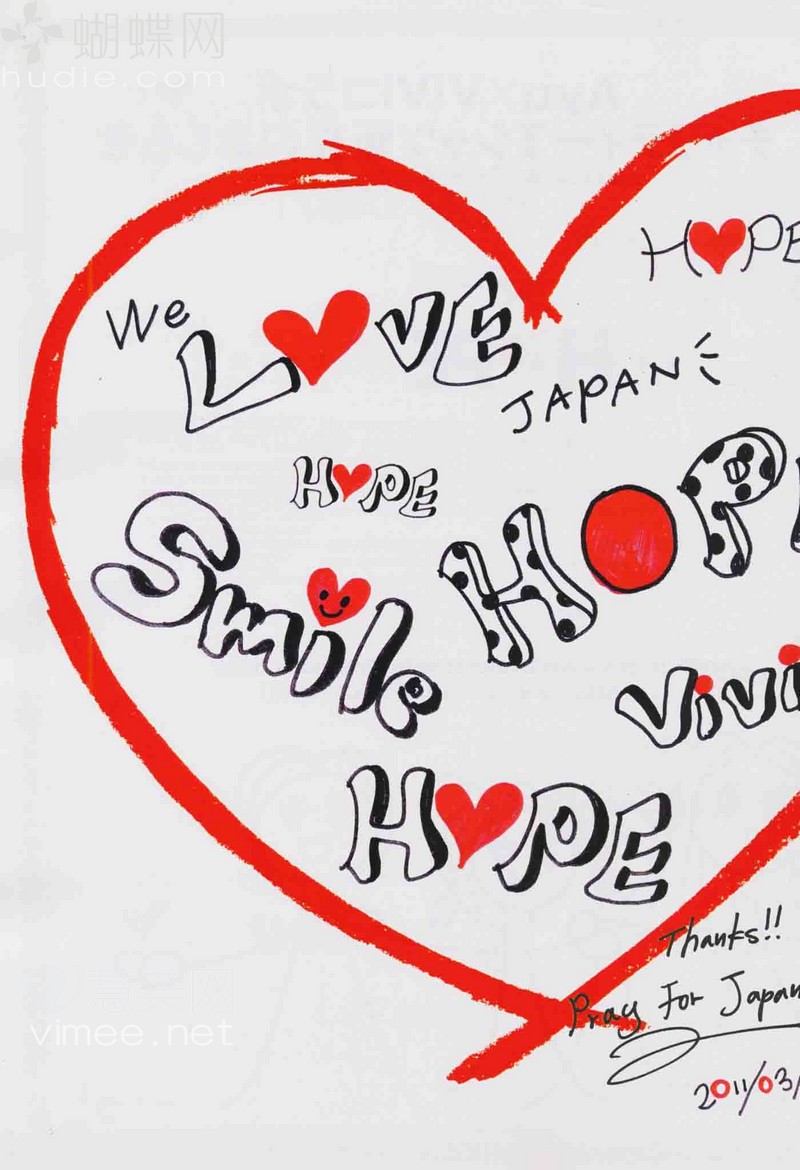 蝴蝶网
hudie.com
HOPE
We
LOVE
JAPAN
HOPE
Smile
HOP
ViVi
HOPE
Thanks!!
Pray For Japan
2011/03/
vimee.net